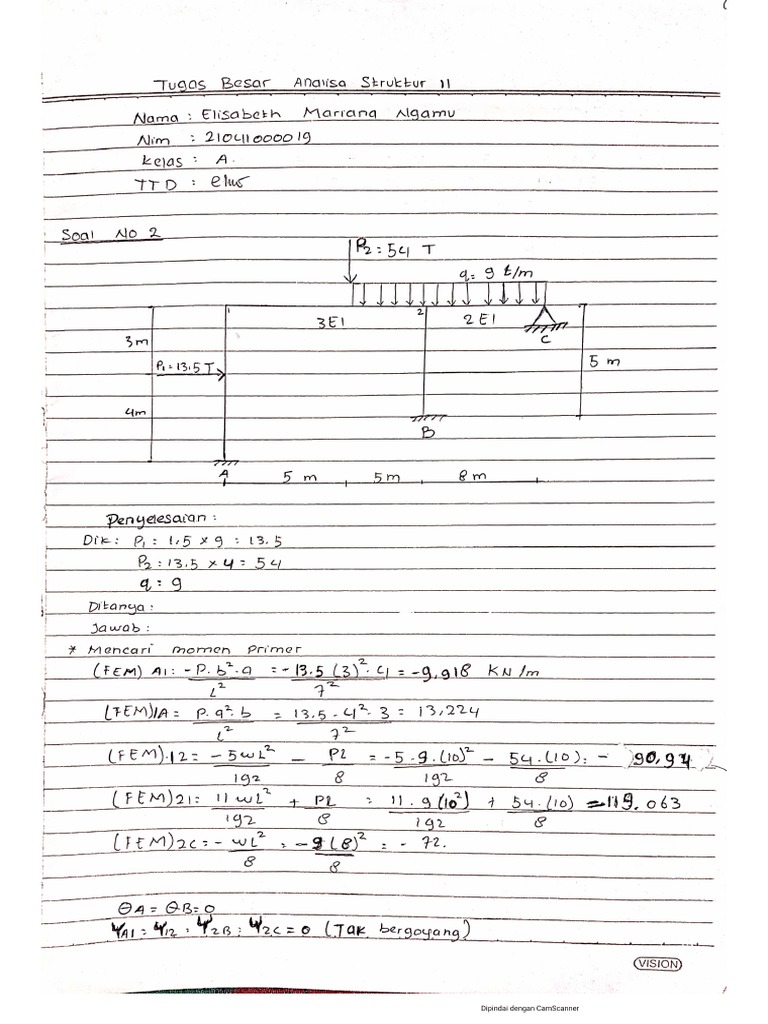 Tugas Besar Analisa Struktur II
Nama : Elisabeth Mariana Ngamu
Nim : 21041000019
Kelas : A.
TTD :
Soal No 2
P2 = 54 T
q = 9 t/m
1
2
3EI
2EI
C
3m
P1 = 13.5 T
4m
5 m
B
A
5 m
5m
8m
Penyelesaian :
Dik : P1 = 1,5 x 9 = 13.5
P2 = 13.5 x 4 = 54
q = 9
Ditanya :
Jawab :
* Mencari momen primer
(FEM) A1 = -P.b².a / L² = -13.5 (3)². 4 / 7² = -9,918 KN/m
(FEM)1A = P.a².b / L² = 13.5 . 4². 3 / 7² = 13,224
(FEM).12 = -5wL² / 192 - PL / 8 = -5.9.(10)² / 192 - 54.(10) / 8 = - 90,94
(FEM)21 = 11wL² / 192 + PL / 8 = 11.9(10²) / 192 + 54.(10) / 8 = 119.063
(FEM)2C = - wL² / 8 = -9(8)² / 8 = - 72.
θA = θB = 0
ΨA1 = Ψ12 = Ψ2B = Ψ2C = 0 (Tak bergoyang)
VISION
Dipindai dengan CamScanner